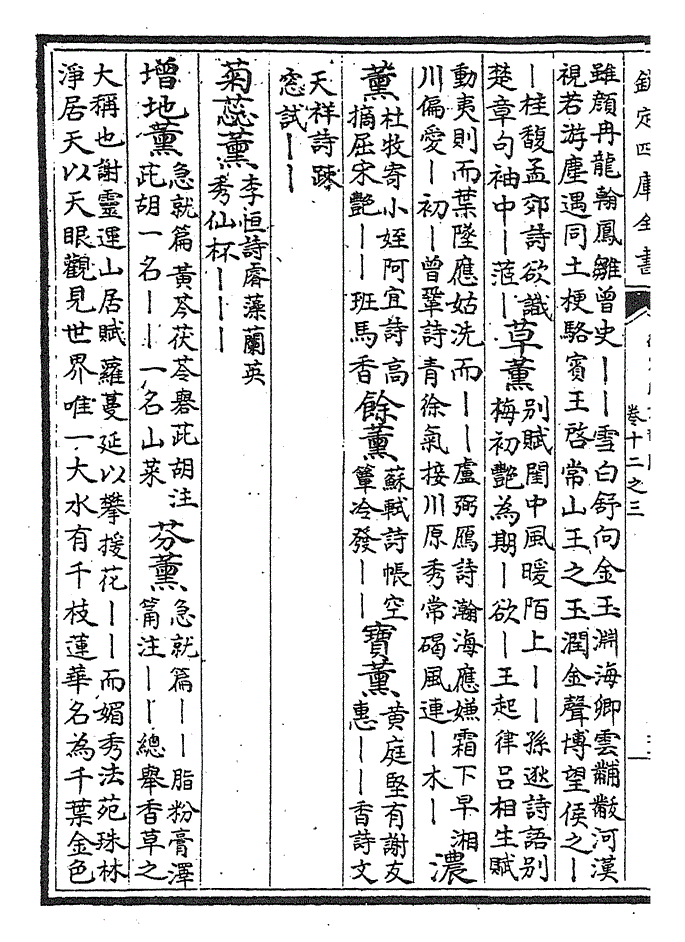 欽定四庫全書
卷十二之三
雖顔冉龍翰鳳雛曾史——雪白舒向金玉淵海卿雲黼黻河漢
視若游塵遇同土梗駱賓王啓常山王之玉潤金聲博望侯之—
—桂馥孟郊詩欲識
楚章句袖中—蒞—
草薰
别賦閨中風暖陌上——孫逖詩語别
梅初艷為期—欲—王起律吕相生賦
動夷則而葉墜應姑洗而——盧弼鴈詩瀚海應嫌霜下早湘
川偏愛—初—曾鞏詩青徐氣接川原秀常碣風連—木—
濃
薰
杜牧寄小姪阿宜詩高
摘屈宋艷——班馬香
餘薰
蘇軾詩帳空
簟冷發——
寶薰
黄庭堅有謝友
惠——香詩文
天祥詩疎
窓試——
菊蕊薰
李恒詩睿藻蘭英
秀仙杯———
増地薰
急就篇黄芩茯苓礜茈胡注
茈胡一名——一名山菜
芬薰
急就篇——脂粉膏澤
筩注——總舉香草之
大稱也謝靈運山居賦蘿蔓延以攀援花——而媚秀法苑珠林
淨居天以天眼觀見世界唯一大水有千枝蓮華名為千葉金色